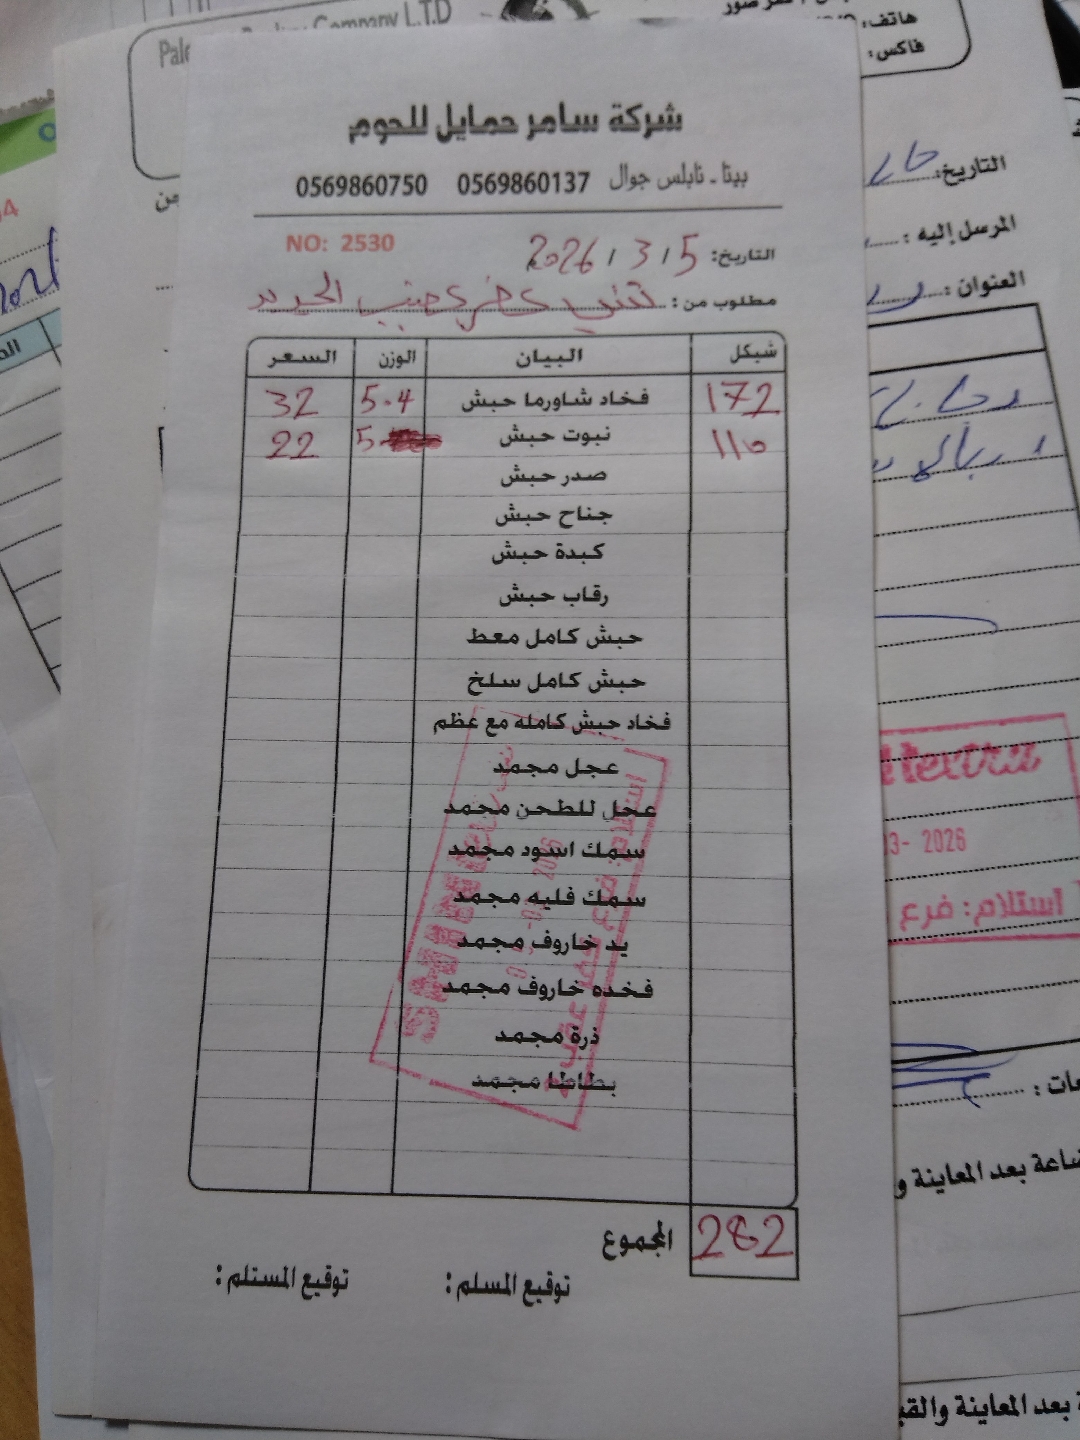 Company L.T.D
هاتف:
فاكس:
شركة سامر حمايل للحوم
بيتا - نابلس جوال 0569860137 0569860750
NO: 2530
التاريخ: 2026/3/5
مطلوب من:
شيكل البيان الوزن السعر
172 فخاد شاورما حبش 5.4 32
110 نبوت حبش 5 22
صدر حبش
جناح حبش
كبدة حبش
رقاب حبش
حبش كامل معط
حبش كامل سلخ
فخاد حبش كامله مع عظم
عجل مجمد
عجل للطحن مجمد
سمك اسود مجمد
سمك فليه مجمد
يد خاروف مجمد
فخده خاروف مجمد
ذرة مجمد
بطاطا مجمد
المجموع 282
توقيع المسلم: توقيع المستلم:
التاريخ:
المرسل إليه:
العنوان:
03- 2026
استلام: فرع